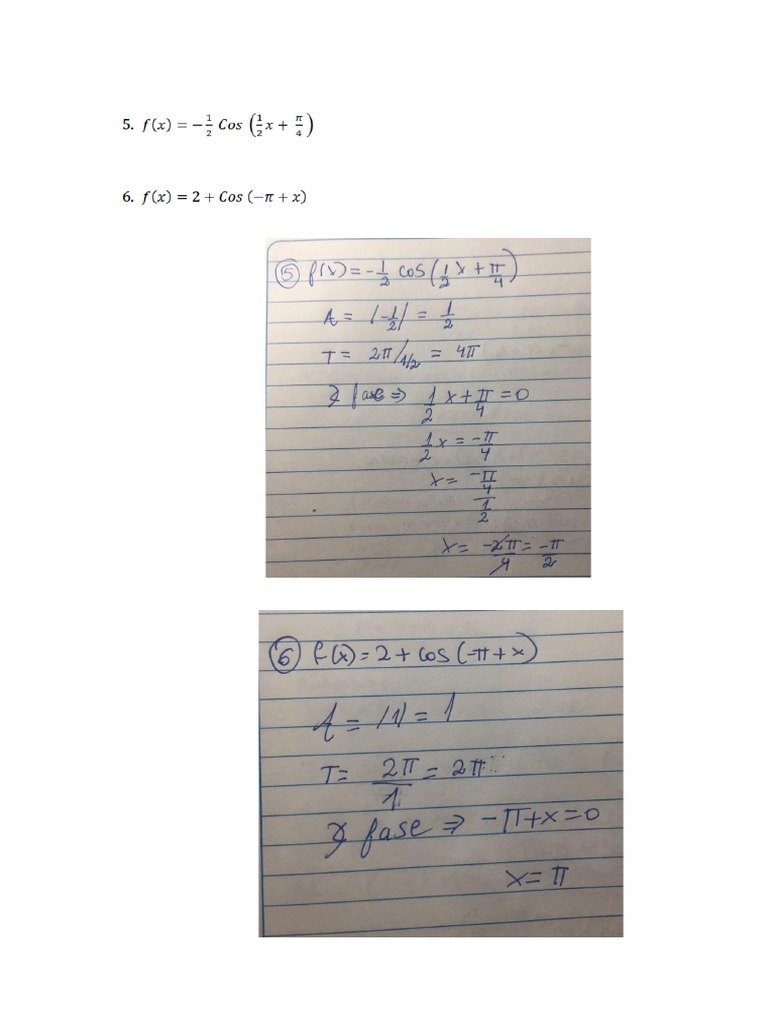 5. f(x) = −1/2 Cos (1/2 x + π/4)
6. f(x) = 2 + Cos (−π + x)
5 f(x) = -1/2 cos (1/2 x + π/4)
A = |-1/2| = 1/2
T = 2π/1/2 = 4π
fase ⇒ 1/2 x + π/4 = 0
1/2 x = -π/4
x = -π/4 / 1/2
x = -2π/4 = -π/2
6 f(x) = 2 + cos (-π + x)
A = |1| = 1
T = 2π/1 = 2π
fase ⇒ -π + x = 0
x = π